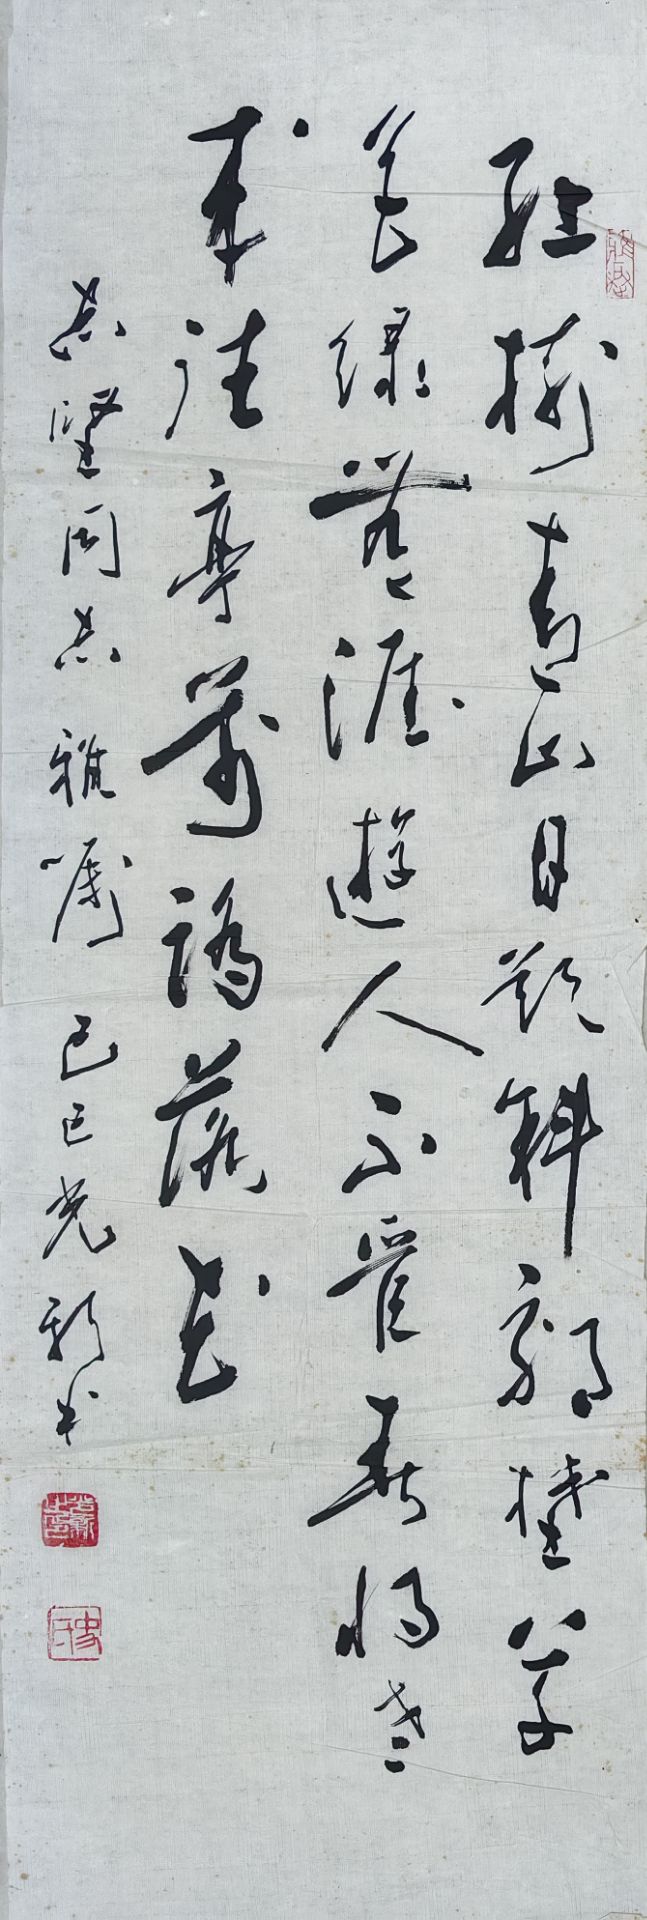 红樹青山日欲斜草
色绿無涯遊人不管春将老
来往亭前踏落花
志堅同志雅嘱 己巳光新书